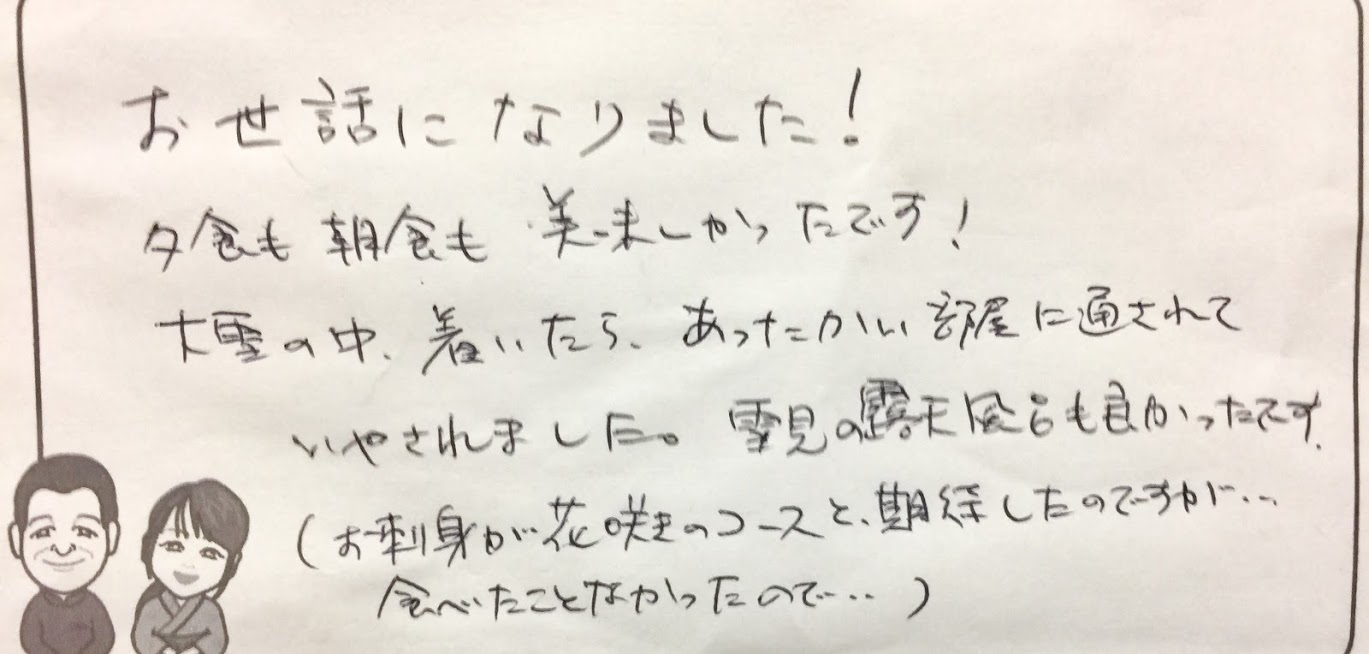 お世話になりました!
夕食も朝食も美味しかったです!
大雪の中、着いたら、あったかい部屋に通されて
いやされました。雪見の露天風呂も良かったです。
(お刺身が花咲きのコースと、期待したのですが…
食べたことなかったので…)